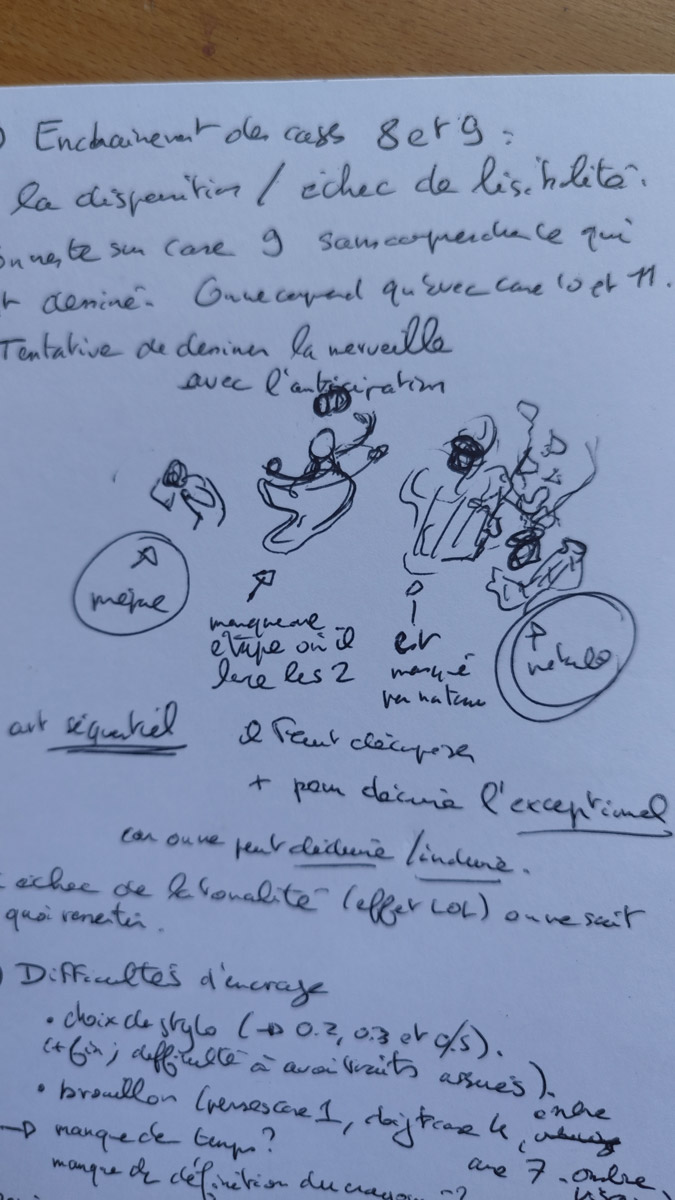 ) Enchainement des cases 8 et 9 :
la disparition / échec de lisibilité.
on reste sur case 9 sans comprendre ce qui
est dessiné. On ne comprend qu'avec case 10 et 11.
Tentative de dessiner la merveille
avec l'anticipation
même
manque une
étape où il
lève les 2
est
masqué
par
art séquentiel
il faut décomposer
+ pour décrire l'exceptionnel
car on ne peut déduire / induire.
échec de la tonalité (effet LOL) on ne sait
quoi ressentir.
) Difficultés d'encrage
• choix de stylo (→ 0.2, 0.3 et 0.5).
(+ fin ; difficulté à avoir traits assurés).
• brouillon (case 1, doigt case 4, ombre
→ manque de temps ?
case 7 . ombre
manque de définition du crayon ?